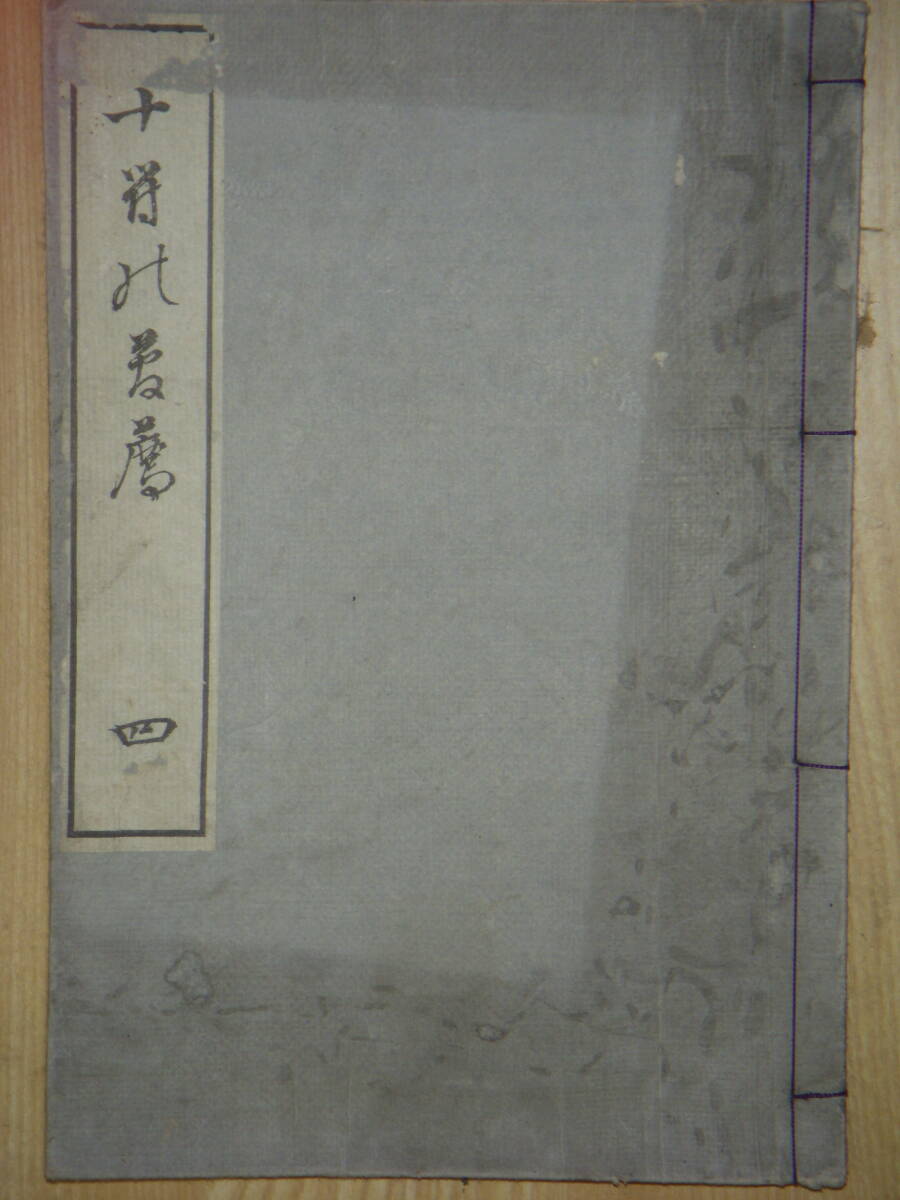 十符の菅薦
四